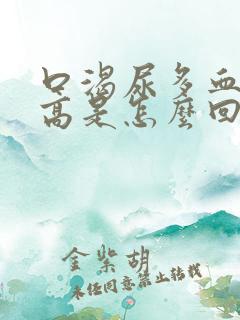 口渴尿多血
高是怎麼回
金紫胡
未经同意禁止转载